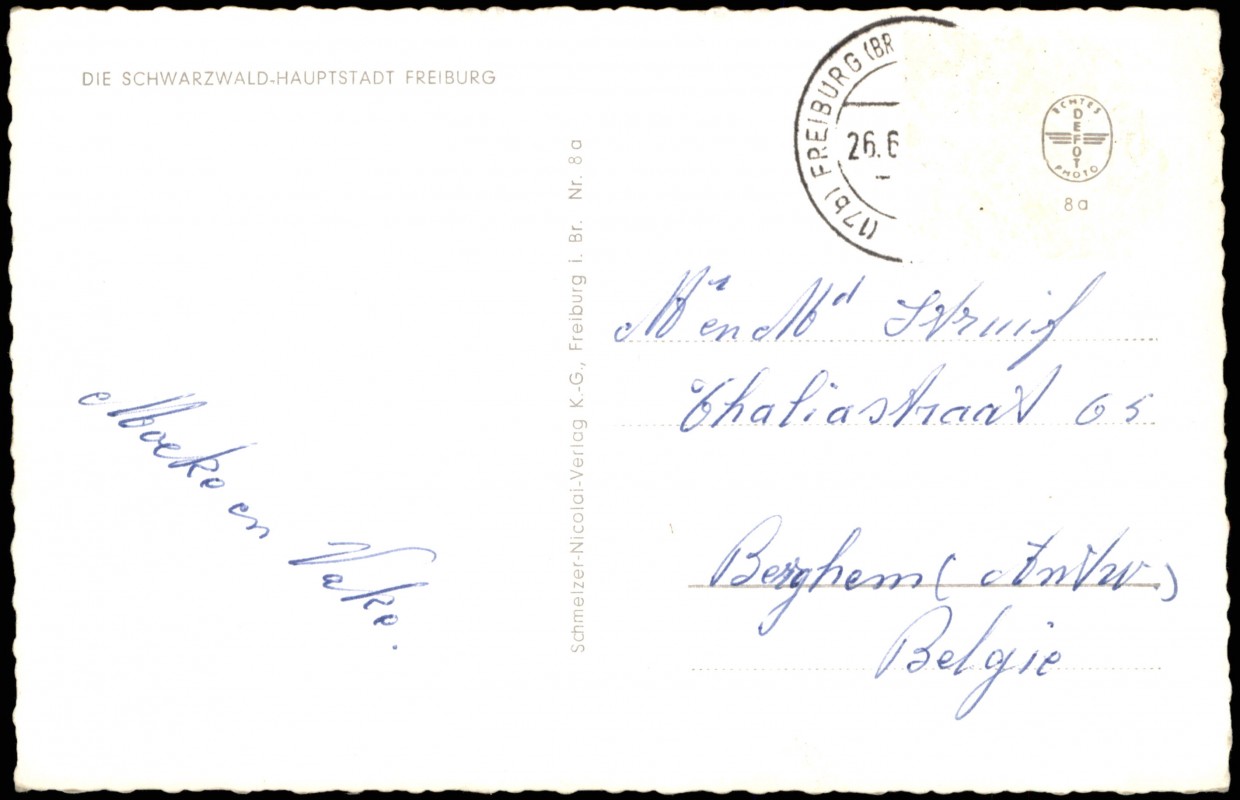 DIE SCHWARZWALD-HAUPTSTADT FREIBURG
(17b) FREIBURG (BR
26.6
ECHTES
DEFOT
PHOTO
8a
Schmelzer-Nicolai-Verlag K.-G., Freiburg i. Br. Nr. 8a
Moeke en Vake.
Mr en Md Struif
Thaliastraat 65
Berghem (Antw.)
Belgie